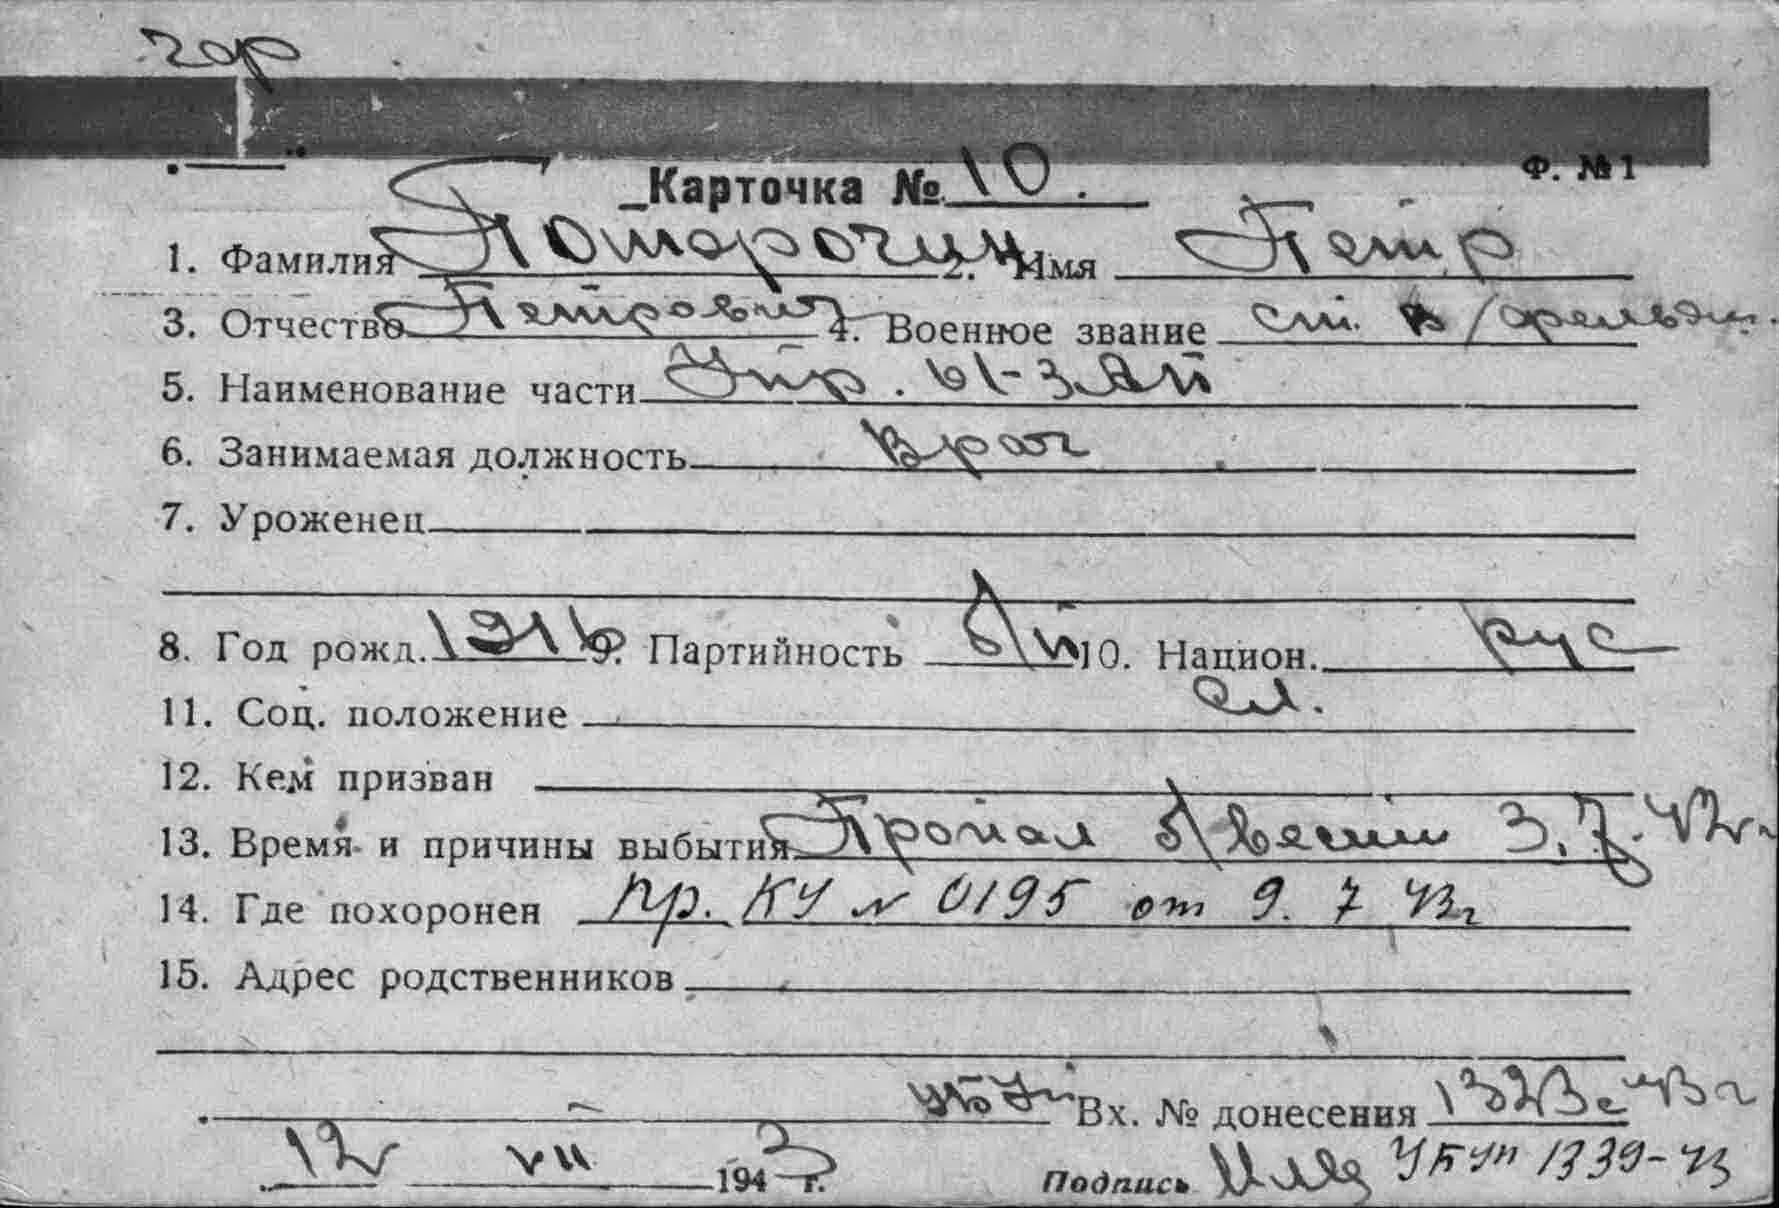 гор
Ф. № 1
Карточка № 10.
1. Фамилия Потарочин 2. Имя Петр
3. Отчество Петрович 4. Военное звание ст. в/фельдш.
5. Наименование части Упр. 61-ЗАП
6. Занимаемая должность врач
7. Уроженец
8. Год рожд. 1916 9. Партийность б/п 10. Национ. рус
11. Соц. положение сл.
12. Кем призван
13. Время и причины выбытия Пропал б/вести 3.7.42г
14. Где похоронен пр. КУ № 0195 от 9. 7 43г
15. Адрес родственников
Вх. № донесения 1323с 43г
12 VII 1943 г. Подпись УБУП 1339-43